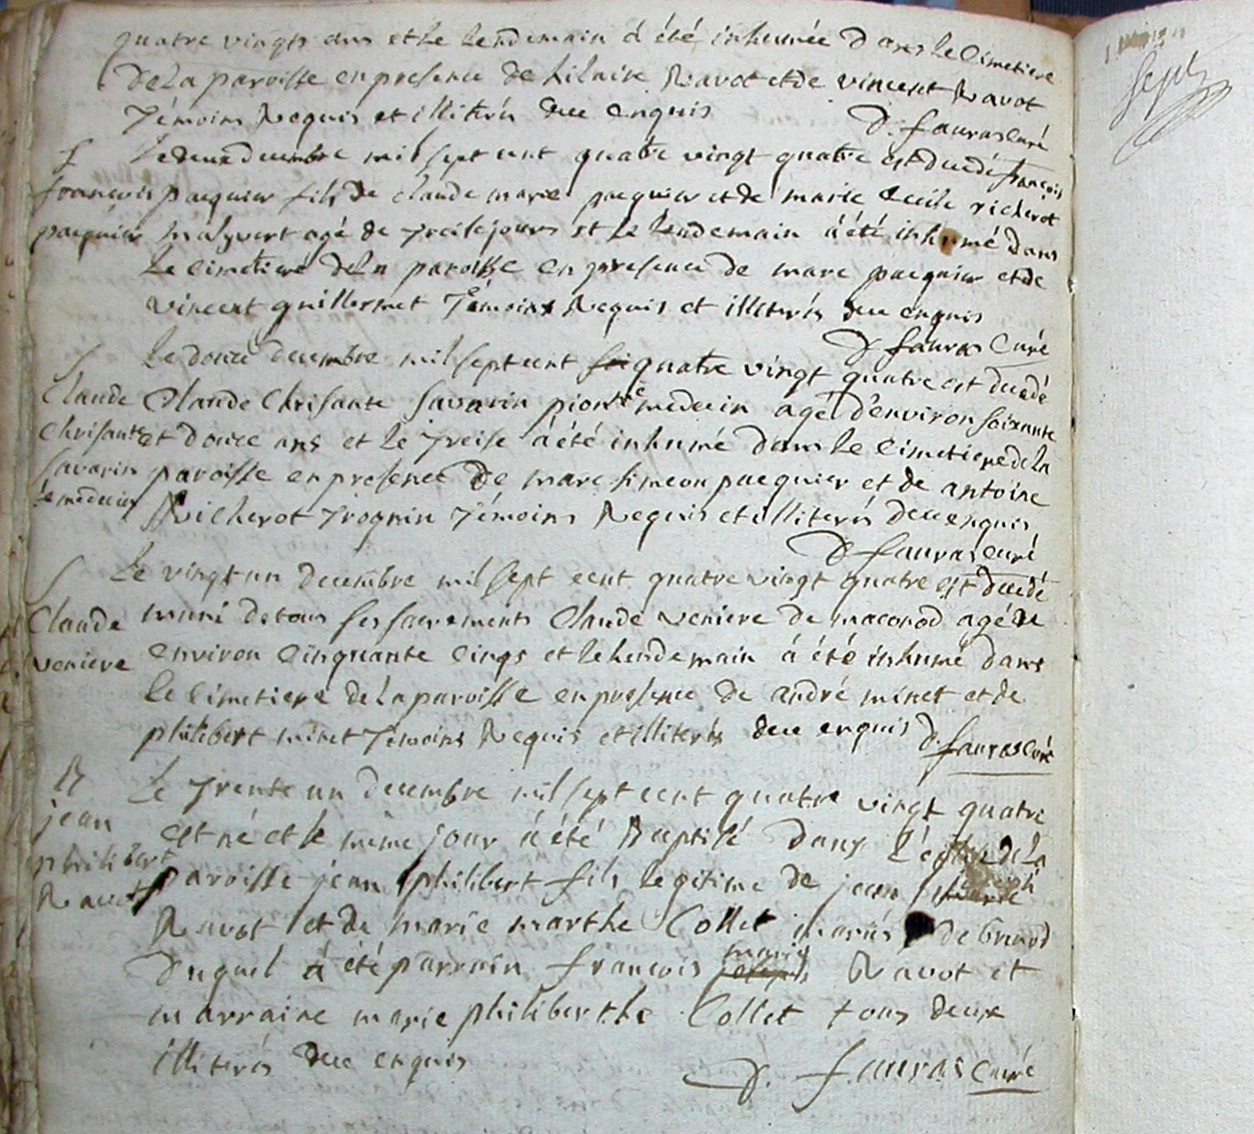 quatre vingts ans et le lendemain a été inhumée dans le cimetiere
de la paroisse en presence de hilaire Ravot et de vincent Ravot
Témoins Requis et illiterés deue enquis
D. fauras Curé
Le deuxe decembre mil sept cent quatre vingt quatre est decedé françois
françois pacquier fils de claude marie pacquier et de marie Cecile richerot
pacquier malyvert agé de Treise jours et le lendemain a été inhumé dans
Le Cimetiere de La paroisse en presence de marc pacquier et de
vincent guillermet Témoins Requis et illiterés deue enquis
D fauras Curé
Le douze decembre mil sept cent quatre vingt quatre est decedé
Claude Claude Chrisante Savarin medecin agé d'environ soixante
Chrisante et douze ans et le Treise a été inhumé dans le cimetiere de la
Savarin paroisse en presence de marc simeon pacquier et de antoine
Le medecin Richerot Trognin Témoins Requis et illiterés deue enquis
D fauras Curé
Le vingt un decembre mil sept cent quatre vingt quatre est decedé
Claude muni de tous ses sacrements Claude veniere de maconod agé de
veniere environ Cinquante Cinqs et le lendemain a été inhumé dans
le Cimetiere de La paroisse en presence de andré minet et de
philibert minet Témoins Requis et illiterés deue enquis D. fauras Curé
B Le Trente un decembre mil sept cent quatre vingt quatre
jean est né et le même jour a été Baptisé dans l'eglise de la
philibert paroisse jean philibert fils legitime de jean joseph
Ravot Ravot et de marie marthe Collet mariés de brenod
Duquel a été parrain françois marie Ravot et
marraine marie philiberthe Collet tous deux
illiterés deue enquis
D. fauras Curé